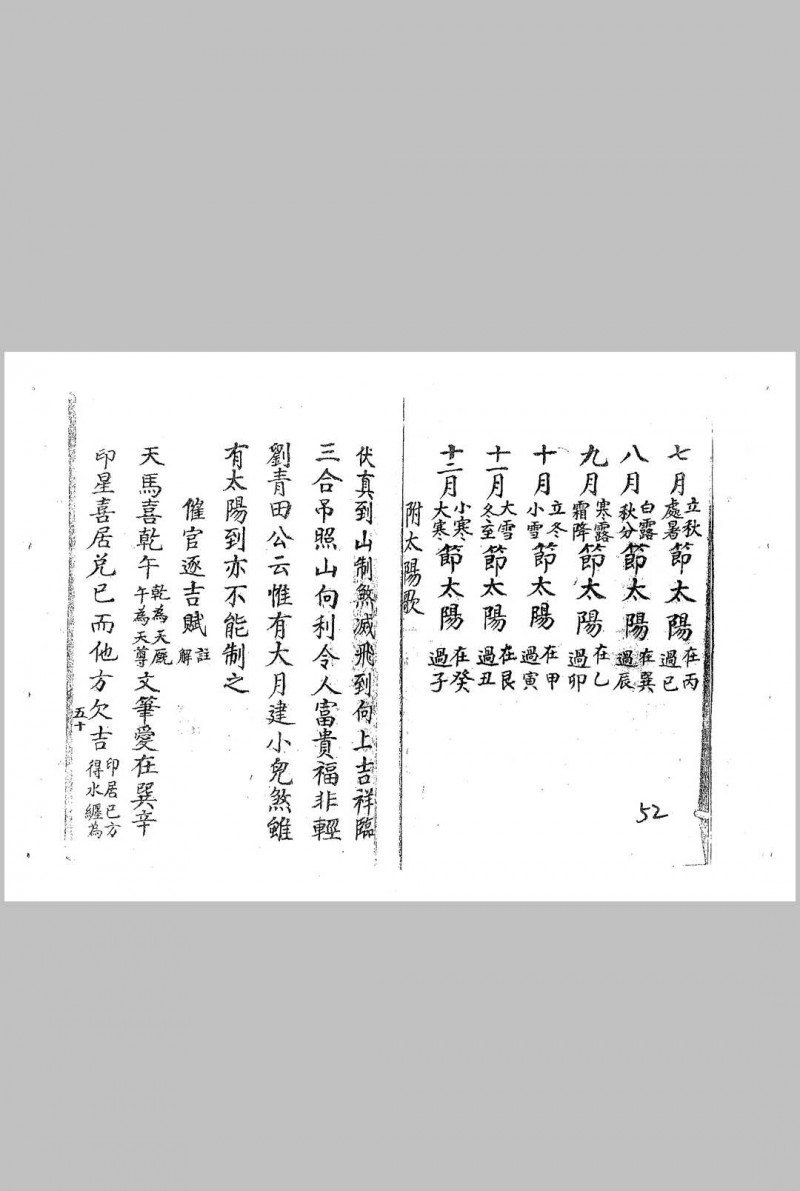 七月立秋處暑節太陽在丙過巳
八月白露秋分節太陽在巽過辰
九月寒露霜降節太陽在乙過卯
十月立冬小雪節太陽在甲過寅
十一月大雪冬至節太陽在艮過丑
十二月小寒大寒節太陽在癸過子
附太陽歌
52
伏真到山制煞滅飛到向上吉祥臨
三合吊照山向利令人富貴福非輕
劉青田公云惟有大月建小兒煞雖
有太陽到亦不能制之
催官逐吉賦註解
天馬喜乾午乾為天厩午為天尊文筆愛在巽辛
印星喜居兌巳而他方欠吉印居巳方得水纏為
五十